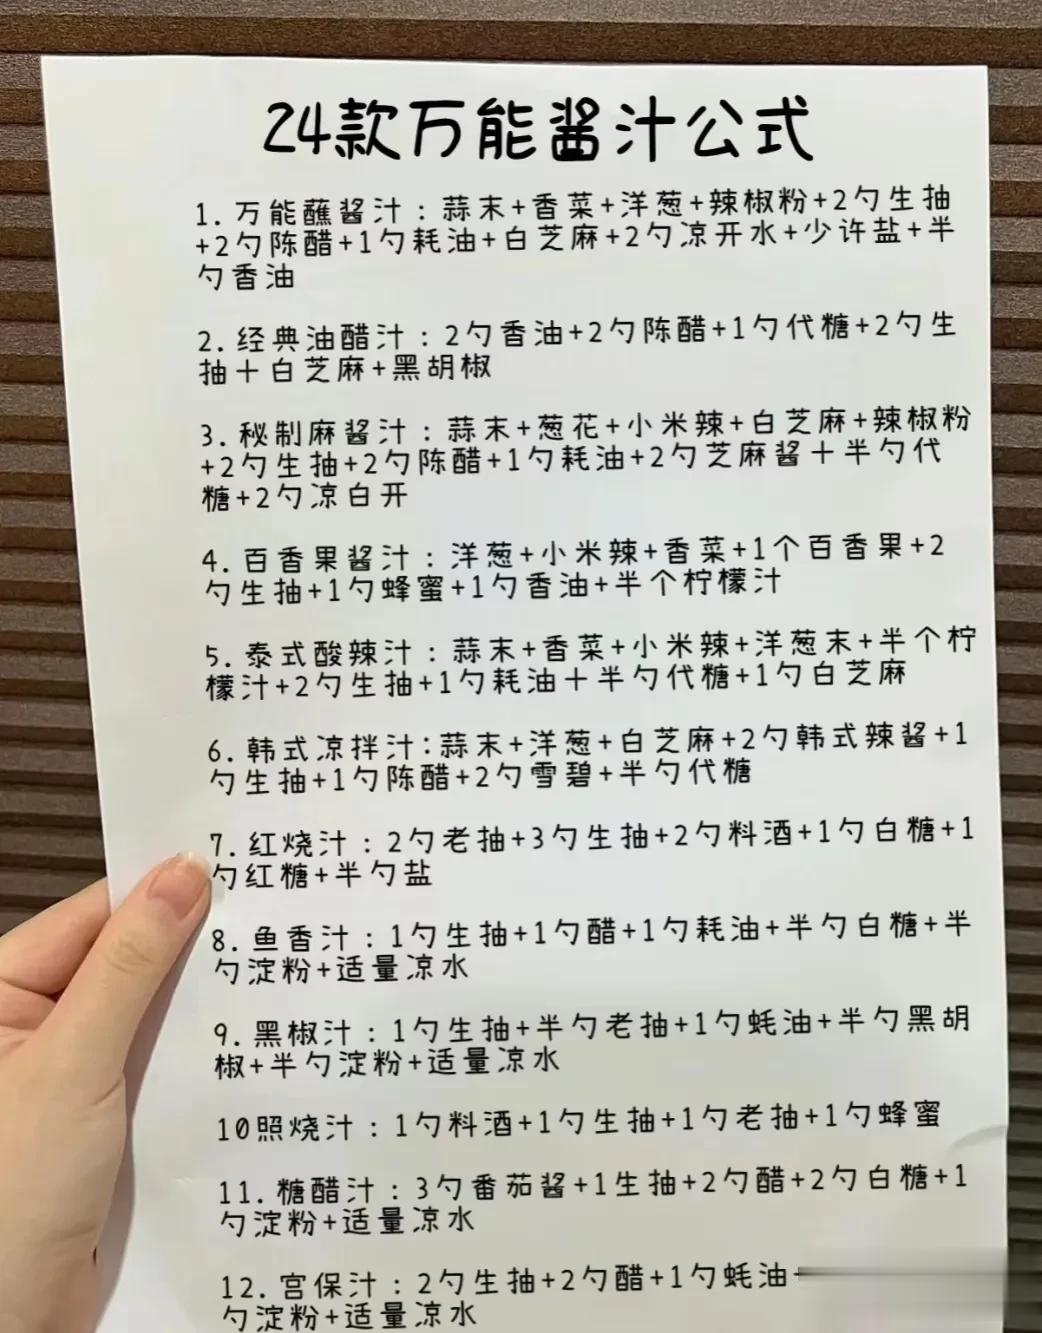 24款万能酱汁公式
1. 万能蘸酱汁：蒜末+香菜+洋葱+辣椒粉+2勺生抽
+2勺陈醋+1勺耗油+白芝麻+2勺凉开水+少许盐+半
勺香油
2. 经典油醋汁：2勺香油+2勺陈醋+1勺代糖+2勺生
抽十白芝麻+黑胡椒
3. 秘制麻酱汁：蒜末+葱花+小米辣+白芝麻+辣椒粉
+2勺生抽+2勺陈醋+1勺耗油+2勺芝麻酱十半勺代
糖+2勺凉白开
4. 百香果酱汁：洋葱+小米辣+香菜+1个百香果+2
勺生抽+1勺蜂蜜+1勺香油+半个柠檬汁
5. 泰式酸辣汁：蒜末+香菜+小米辣+洋葱末+半个柠
檬汁+2勺生抽+1勺耗油十半勺代糖+1勺白芝麻
6. 韩式凉拌汁:蒜末+洋葱+白芝麻+2勺韩式辣酱+1
勺生抽+1勺陈醋+2勺雪碧+半勺代糖
7. 红烧汁：2勺老抽+3勺生抽+2勺料酒+1勺白糖+1
勺红糖+半勺盐
8. 鱼香汁：1勺生抽+1勺醋+1勺耗油+半勺白糖+半
勺淀粉+适量凉水
9. 黑椒汁：1勺生抽+半勺老抽+1勺蚝油+半勺黑胡
椒+半勺淀粉+适量凉水
10照烧汁：1勺料酒+1勺生抽+1勺老抽+1勺蜂蜜
11. 糖醋汁：3勺番茄酱+1生抽+2勺醋+2勺白糖+1
勺淀粉+适量凉水
12. 宫保汁：2勺生抽+2勺醋+1勺蚝油+
勺淀粉+适量凉水